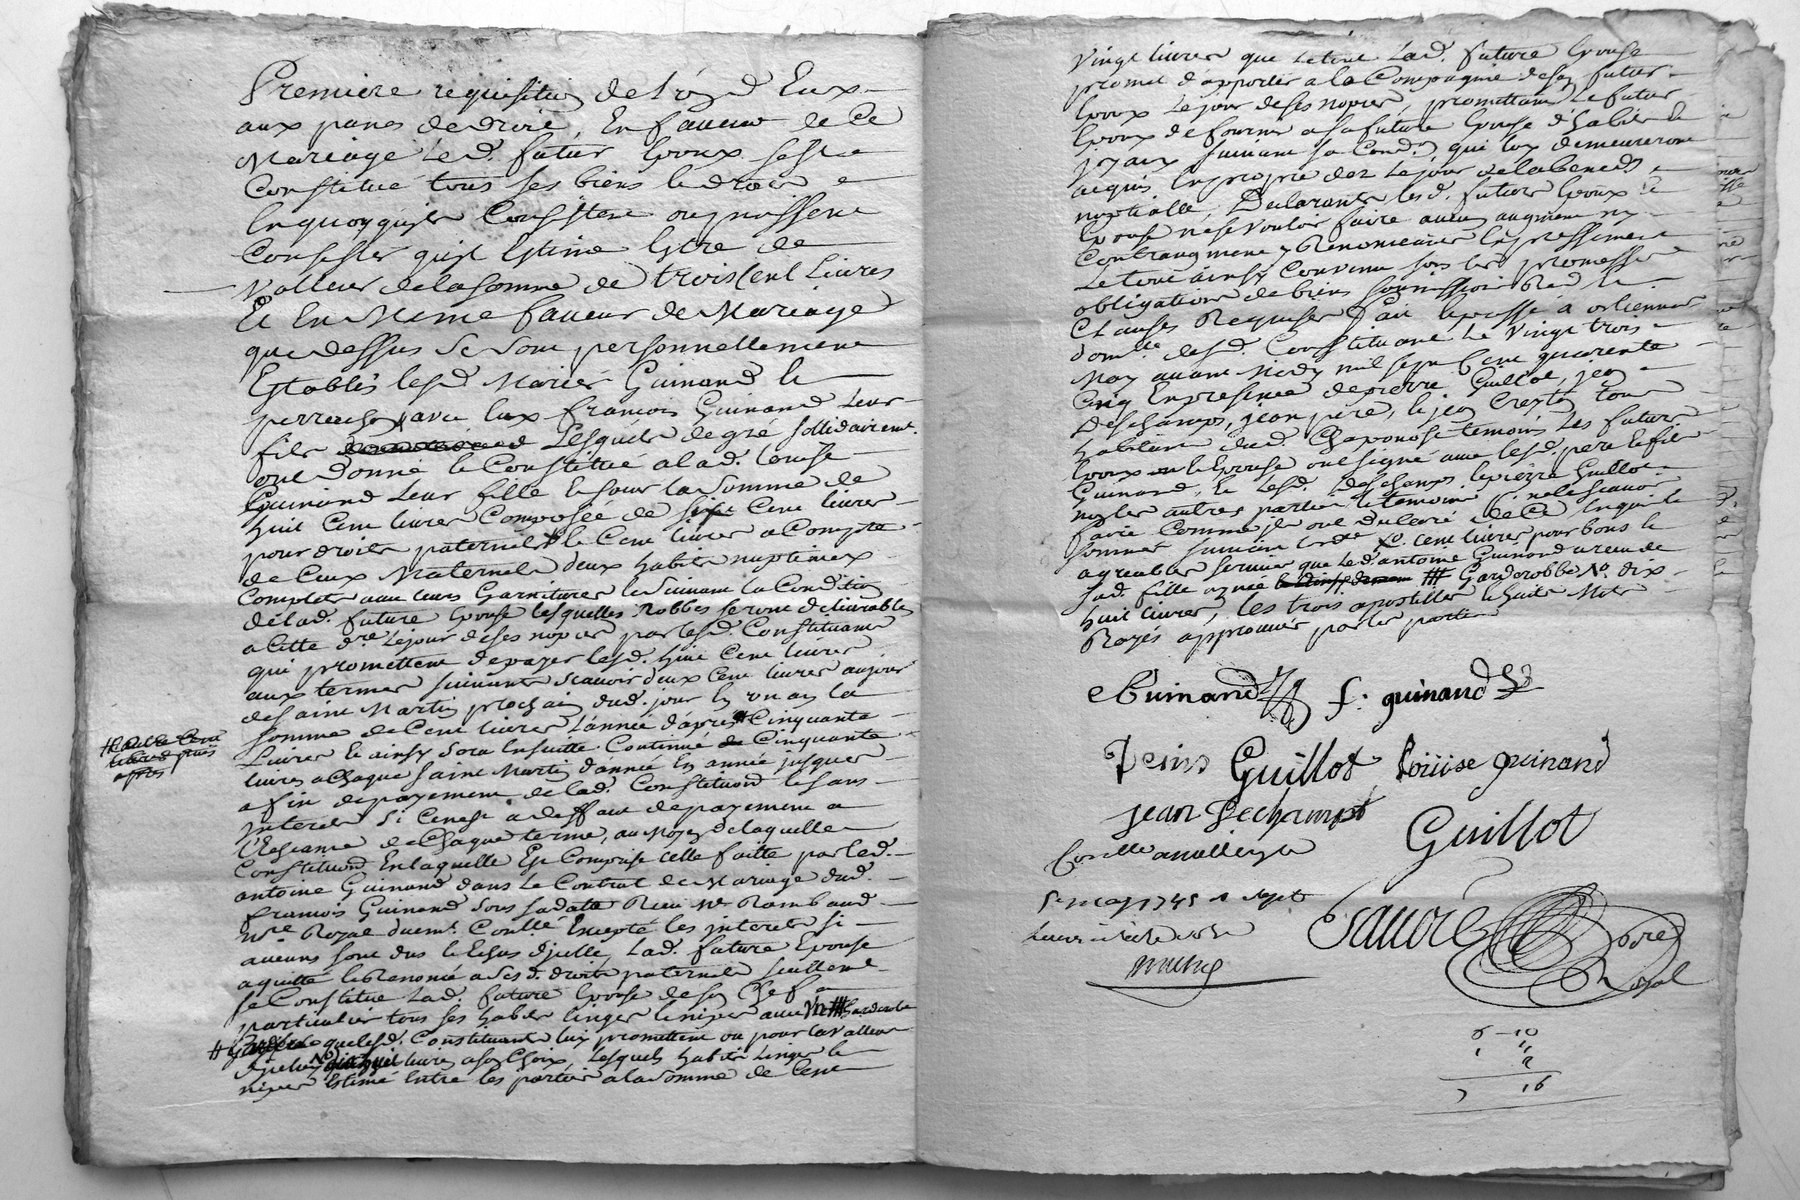 Premiere requisition de l'ord Eux
aux peines de droit, En faueur de Ce
Mariage Led. futur Epoux sest
Constitué tous ses biens le droits
En quoy qu'ils Consistent ou puissent
Consister qu'il Estime Estre de
Valleur de la somme de trois Cent Livres
Et En Meme faueur de Mariage
que dessus se sont personnellement
Establis lesd Mariés Guinand le
perrachon avec Eux francois Guinand Leur
fils Lesquels de gré sollidairemt.
ont Donné le Constitué a lad. Louise
Guinand Leur fille Espour la somme de
huit Cent livres Composée de sept Cent livres
pour droits paternels le Cent livres a Compte
de Ceux Maternels deux habits nuptiaux
Complets avec leurs Garnitures le suivant la Condition
de lad. future Epouse lesquelles Robbes seront delivrables
a Cette dre. Le jour de ses nopces par lesd. Constituants
qui promettent de payer lesd. huit Cent livres
aux termes suivants scavoir deux Cent livres aujour
de saint Martin prochain dud. jour En un an la
somme de Cent livres L'année d'apres # Cinquante
Livres Et ainsy sera Ensuitte Continué de Cinquante
livres a Chaque saint Martin d'année En année jusques
a fin de payement de lad. Constitution le sans
interets si Ce nest a deffaut de payement a
l'Echeance de Chaque terme, au Moyen de laquelle
Constitution En laquelle Est Comprise celle faitte par led.
antoine Guinand dans Le Contrat de Mariage dud.
francois Guinand sous sa datte Receu Me Rambaud
Nore Royal duemt. Conllé Excepté les interets si
aucuns sont dus le Echus d'jcelle, Lad. future Epouse
a quitté le Renoncé a ses d. droits paternels seullemt.
se Constitue Lad. future Epouse de son Chef
particulier tous ses habits linges le nipes avec Un # Garderobe
# Garderobe que lesd. Constituants luy promettent ou pour la Valleur
livres a son Choix, Lesquels habits Linges le
nipes Estimé Entre les parties a la somme de Cent
# autre Cent
livres puis
apres
Vingt livres que Le tout Lad. future Epouse
promet d'apporter a la Compagnie de son futur
Epoux Le jour de ses nopces, promettant Le futur
Epoux de fournir a sa future Epouse d'habits le
joyaux suivant sa Condon qui luy demeureront
acquis En propre des Le jour de la bened.
nuptialle, Declarants lesd. futurs Epoux Et
Epouse ne se vouloir faire aucun augment ny
Contraugment y Renonceants Expressement
Le tout ainsy Convenu sous les promesses
obligations de biens soumissions Red. le
Clauses Requises fait le passé a orlienas
domlle. desd. Constituants Le Vingt trois
May avant Midy mil sept Cent quarente
Cinq En presence de pierre Guillot, jean
Deschamps, jean pere, le jean Crestin tous
habitans dud. Chaponost temoins Les futurs
Epoux le Epouse ont signé avec lesd. pere le fils
Guinand, le lesd. Deschamps le pierre Guillot
non les autres parties le temoins pour ne le scavoir
faire Comme jls ont Declaré de Ce Enquis le
sommés suivant lorde. X Cent livres pour bons le
agreables services que led. antoine Guinand a receu de
sad. fille aynée ### Garderobbe No. dix
huit livres, les trois apostilles huit Mots
Rayés approuvés par les parties
Guinand f. guinand
Denis Guillot Loüise guinand
jean Dechamps
Guillot
Sauore Nore
Royal
6 - 10
16